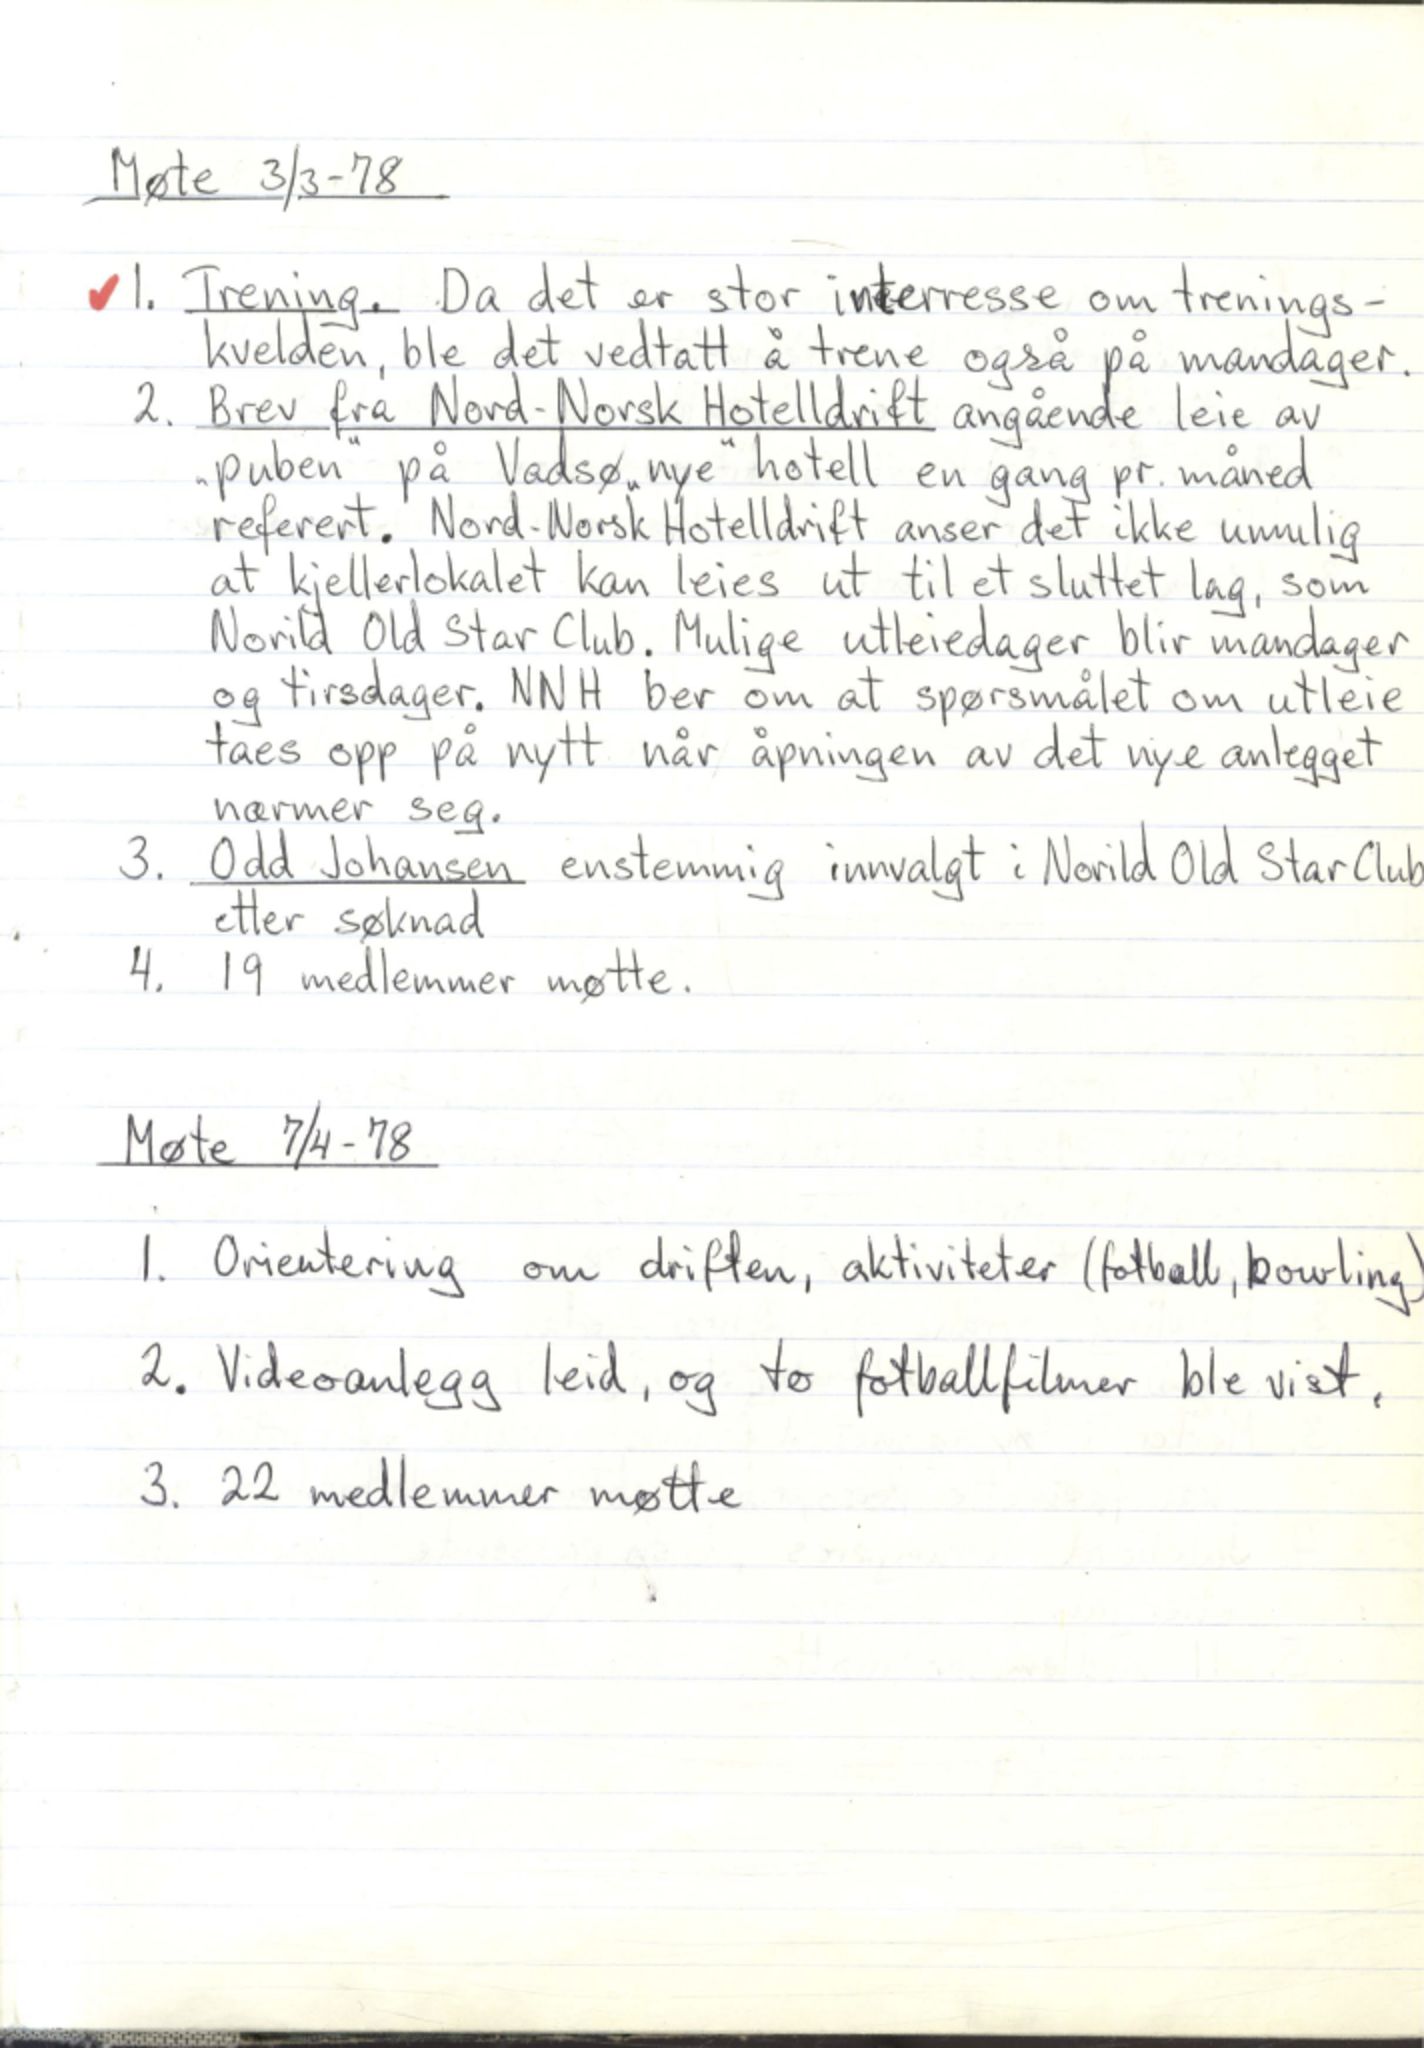 Møte 3/3-78
✓1. Trening. Da det er stor interresse om trenings-
kvelden, ble det vedtatt å trene også på mandager.
2. Brev fra Nord-Norsk Hotelldrift angående leie av
„puben" på Vadsø „nye" hotell en gang pr. måned
referert. Nord-Norsk Hotelldrift anser det ikke umulig
at kjellerlokalet kan leies ut til et sluttet lag, som
Norild Old Star Club. Mulige utleiedager blir mandager
og tirsdager. NNH ber om at spørsmålet om utleie
taes opp på nytt når åpningen av det nye anlegget
nærmer seg.
3. Odd Johansen enstemmig innvalgt i Norild Old Star Club
etter søknad
4. 19 medlemmer møtte.
Møte 7/4-78
1. Orientering om driften, aktiviteter (fotball, bowling)
2. Videoanlegg leid, og to fotballfilmer ble vist.
3. 22 medlemmer møtte